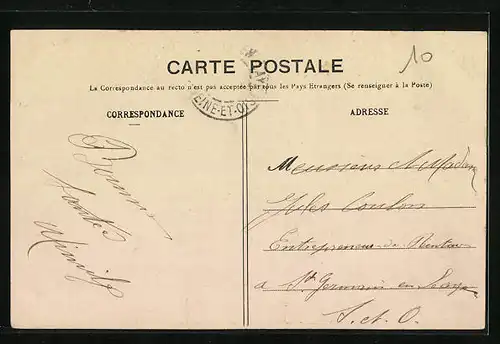 10
CARTE POSTALE
La Correspondance au recto n'est pas acceptée par tous les Pays Étrangers (Se renseigner à la Poste)
CORRESPONDANCE
ADRESSE
EINE-ET-OIS
Bonne
Santé
Monsieur & Madame
Jules Coulon
Entrepreneur de
à St Germain en Laye
S. et O.